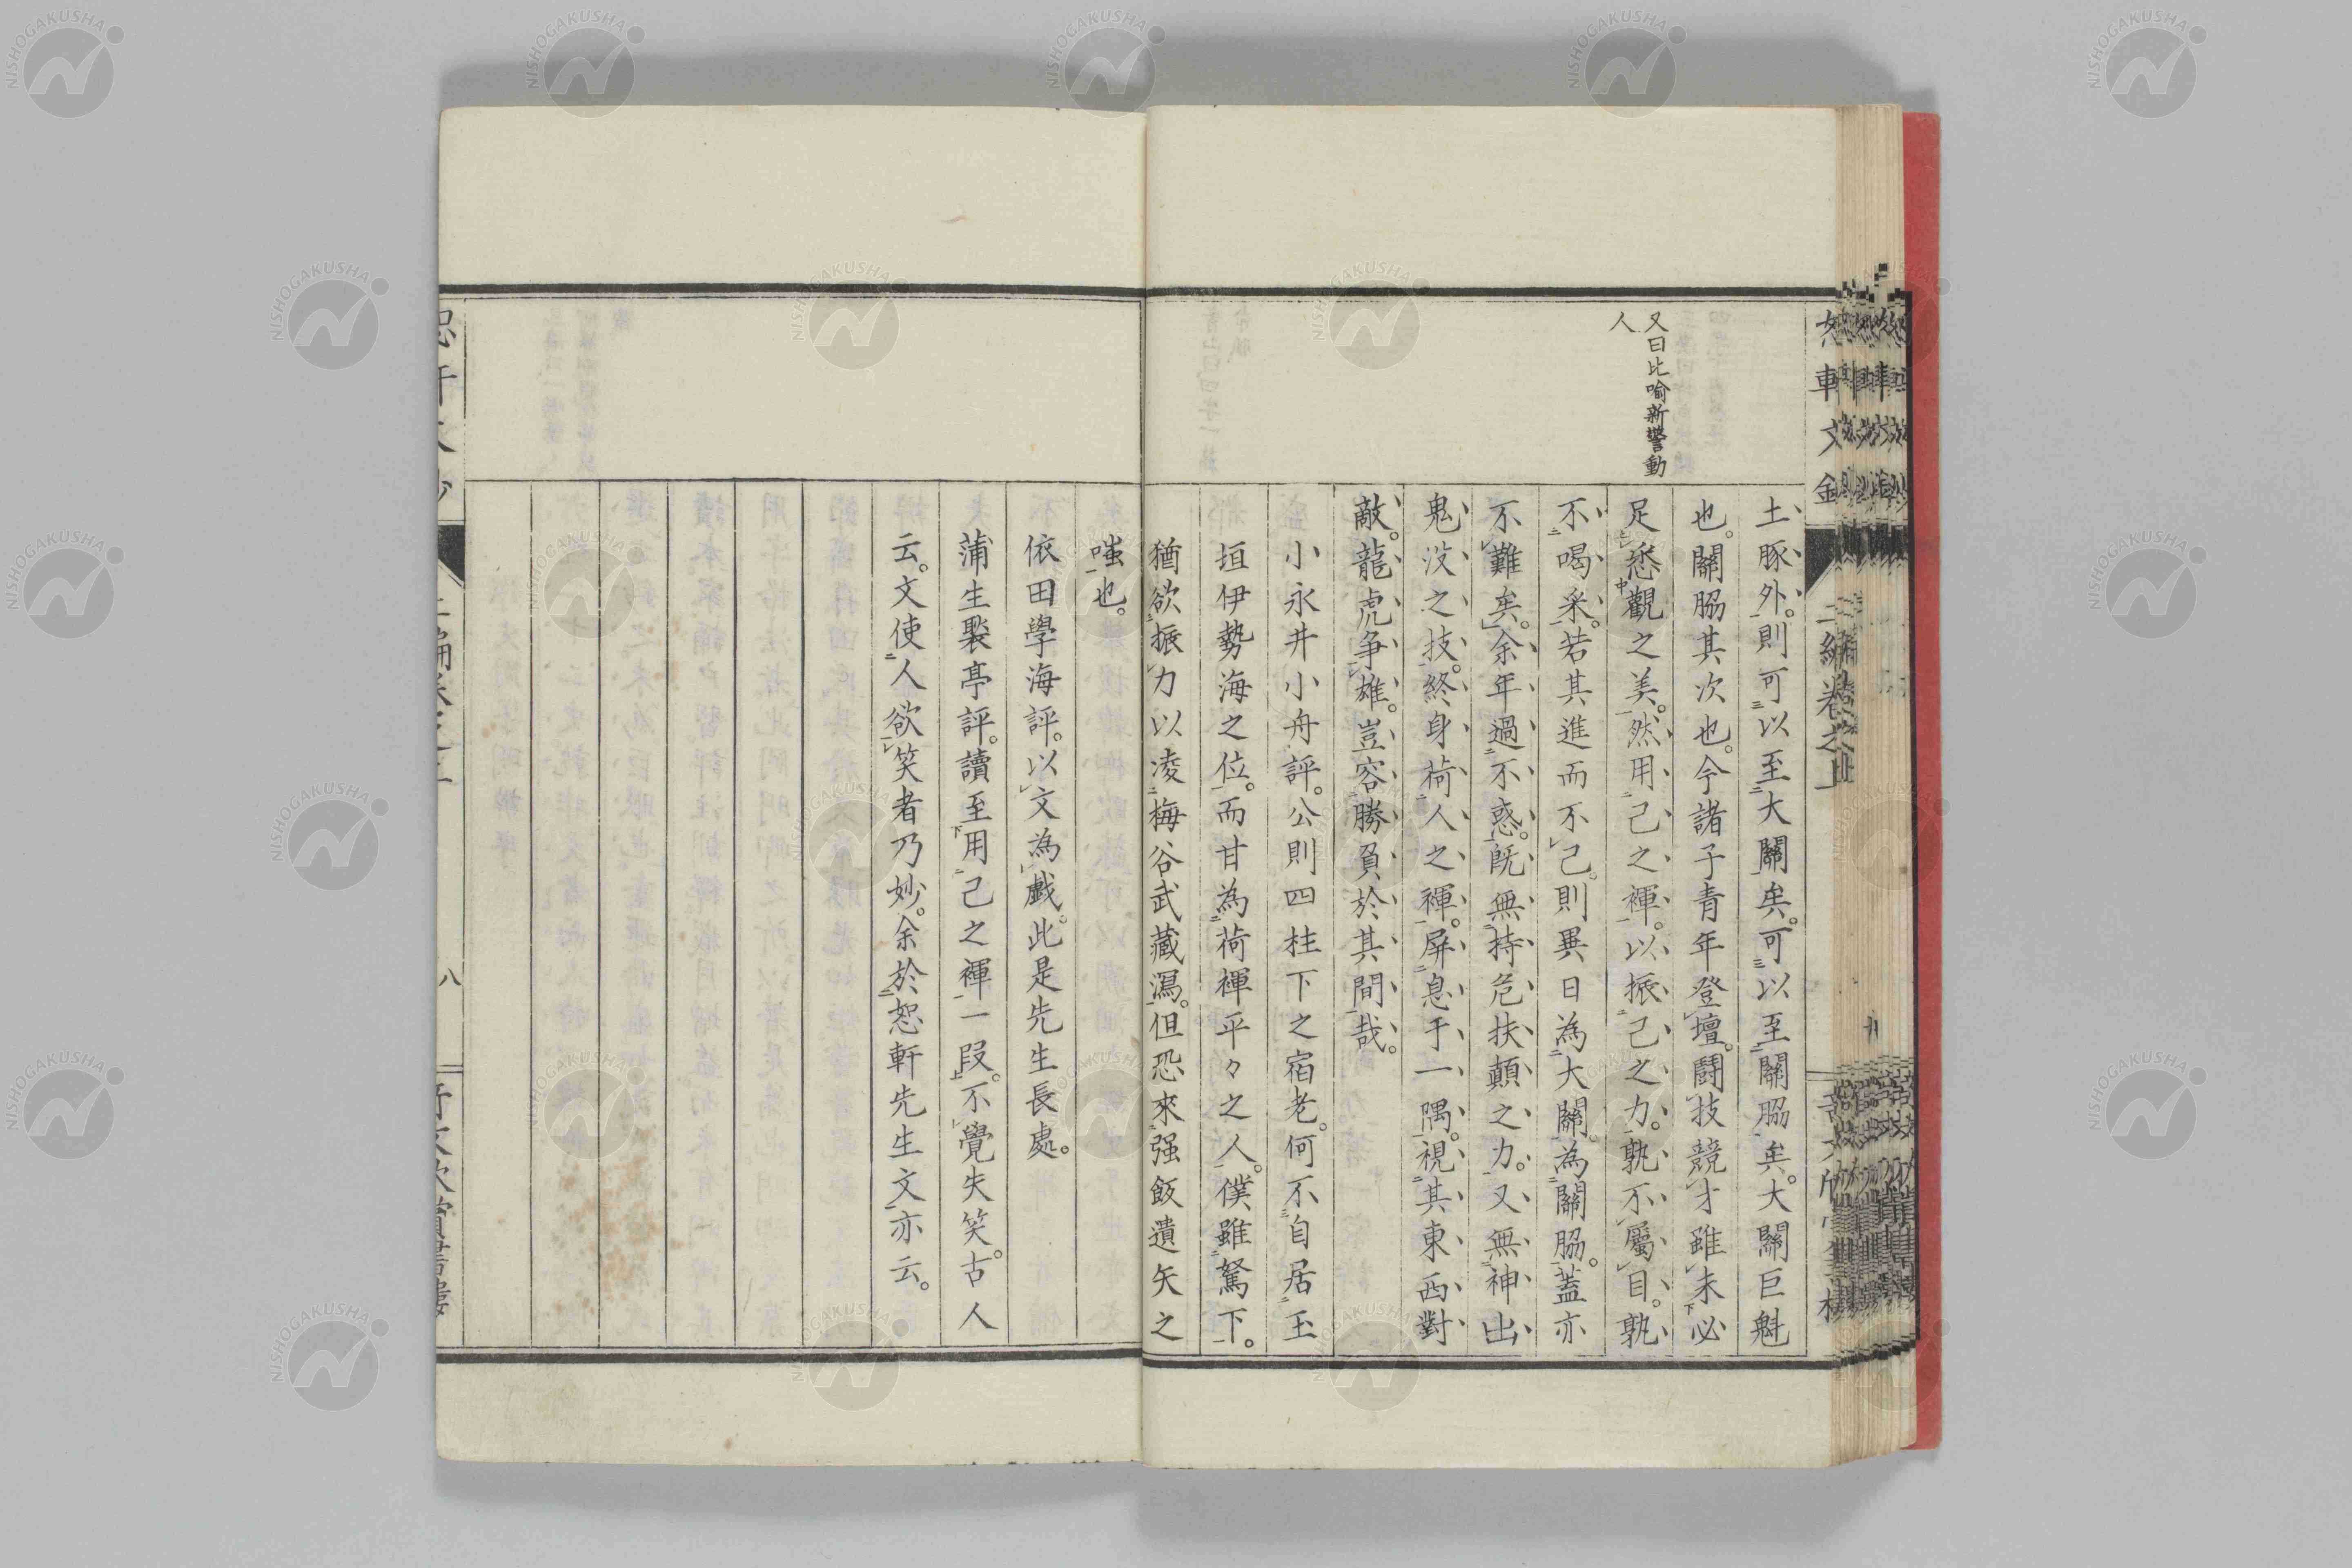 又曰比喻新警動
人
土豚外。則可以至大關矣。可以至關脇矣。大關巨魁
也。關脇其次也。今諸子青年登壇。鬪技競才雖未必
足悉觀之美。然用己之褌。以振己之力。孰不屬目。孰
不喝采。若其進而不已。則異日為大關。為關脇。蓋亦
不難矣。余年過不惑。既無持危扶顛之力。又無神出
鬼沒之技。終身荷人之褌。屏息于一隅。視其東西對
敵。龍虎争雄。豈容勝負於其間哉。
小永井小舟評。公則四柱下之宿老。何不自居玉
垣伊勢海之位。而甘為荷褌平々之人。僕雖駑下。
猶欲振力以凌梅谷武藏潟。但恐來强飯遺矢之
嗤也。
依田學海評。以文為戲。此是先生長處。
蒲生褧亭評。讀至用己之褌一段。不覺失笑。古人
云。文使人欲笑者乃妙。余於恕軒先生文亦云。
八
NISHOGAKUSHA